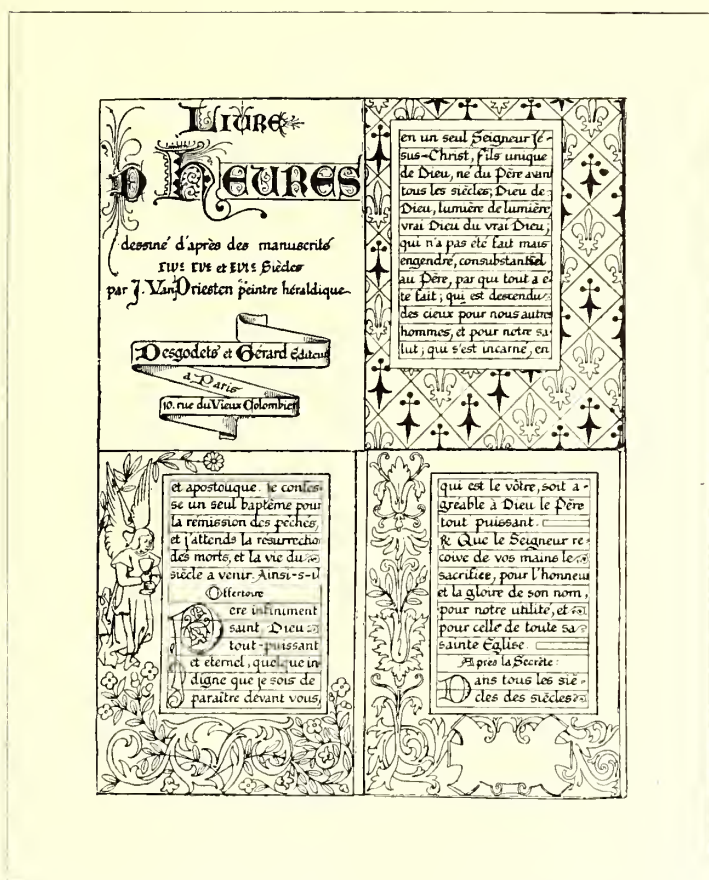 LIVRE
D'HEURES
dessiné d'après des manuscrits
XIVe XVe et XVIe Siècles
par J. Van Driesten peintre héraldique
Desgodets et Gérard Éditeurs
à Paris
10. rue du Vieux Colombier
en un seul Seigneur Jé-
sus-Christ, fils unique
de Dieu, né du Père avant
tous les siècles; Dieu de
Dieu, lumière de lumière,
vrai Dieu du vrai Dieu;
qui n'a pas été fait mais
engendré, consubstantiel
au Père, par qui tout a e
te fait; qui est descendu
des cieux pour nous autres
hommes, et pour notre sa
lut; qui s'est incarné, en
et apostolique. Je confes-
se un seul baptême pour
la rémission des péchés,
et j'attends la résurrectio
des morts, et la vie du
siècle à venir. Ainsi-s-il
Offertoire
Pere infiniment
saint, Dieu
tout-puissant
et eternel, quelque in
digne que je sois de
paraître devant vous,
qui est le vôtre, soit a-
gréable à Dieu le Père
tout puissant.
℟. Que le Seigneur re-
çoive de vos mains le
sacrifice, pour l'honneur
et la gloire de son nom,
pour notre utilité, et
pour celle de toute sa
sainte Église.
Après la Secrète:
Dans tous les siè-
cles des siècles